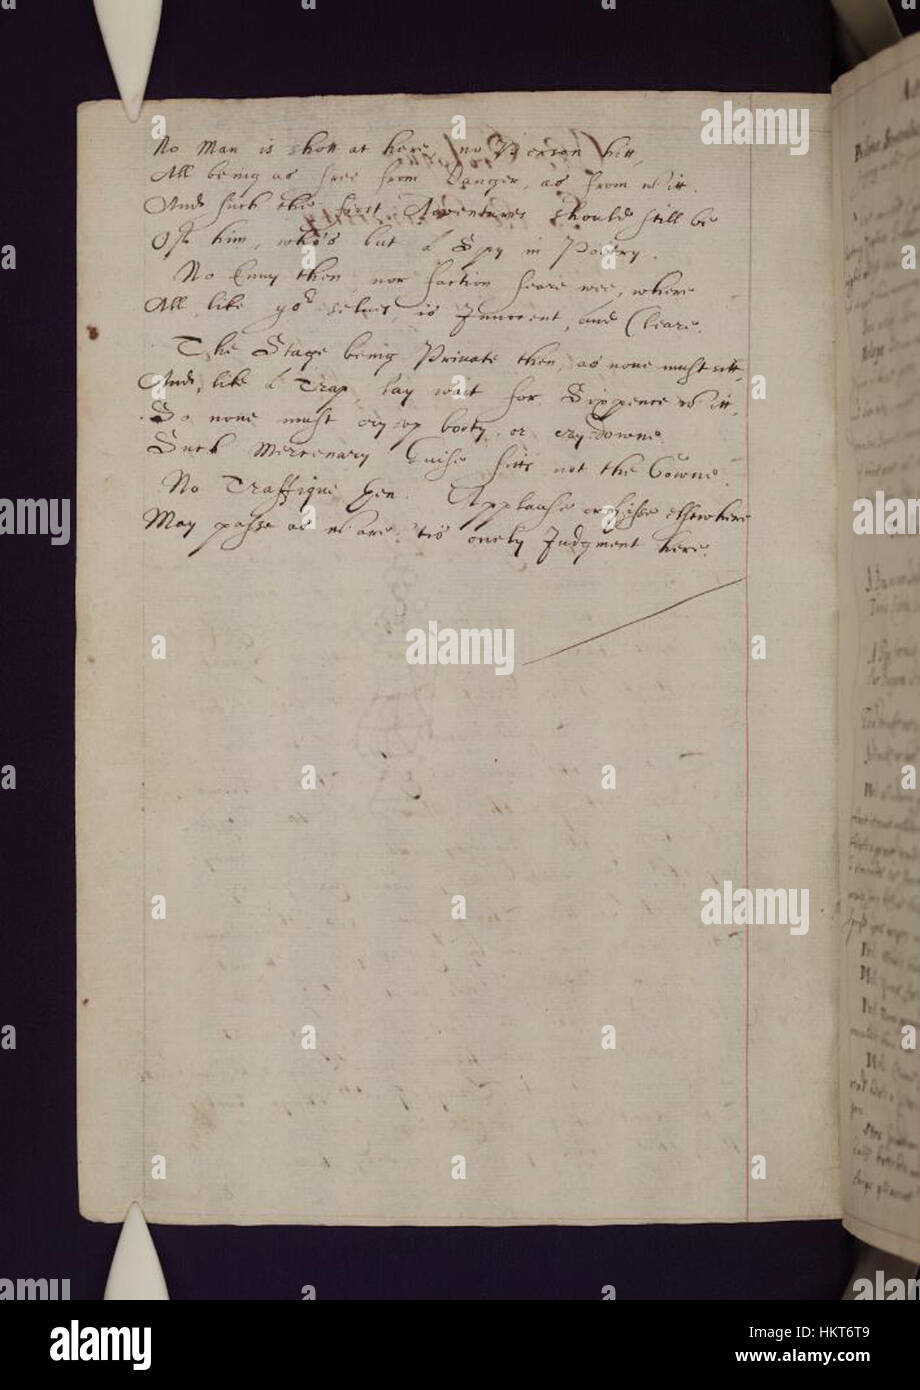 No Man is shott at here, no Person hitt,
All being as free from Danger, as from Witt.
And such the first Adventures should still be
Of him, who's but A Spy in Poetry.
No Enuy then nor faction feare wee, where
All, like yor selues is Innocent, and Cleare.
The Stage being Private then, as none must sitt,
And, like A Trap, lay wait for Sixpence Witt,
So none must cry up booty, or cry downe
Such Mercenary Guise fitts not the Gowne.
No Traffique then. Applause or hisse elsewhere
May passe as Ware, 'tis onely Judgment here.
alamy
Image ID: HKT6T9
www.alamy.com